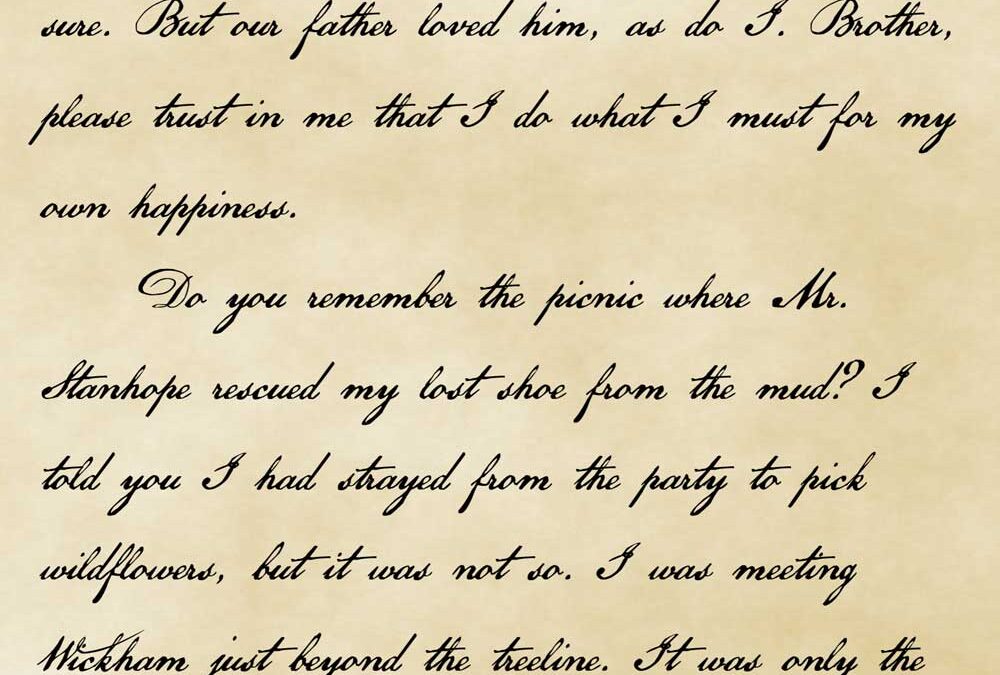 sure. But our father loved him, as do I. Brother,
please trust in me that I do what I must for my
own happiness.
Do you remember the picnic where Mr.
Stanhope rescued my lost shoe from the mud? I
told you I had strayed from the party to pick
wildflowers, but it was not so. I was meeting
Wickham just beyond the treeline. It was only the